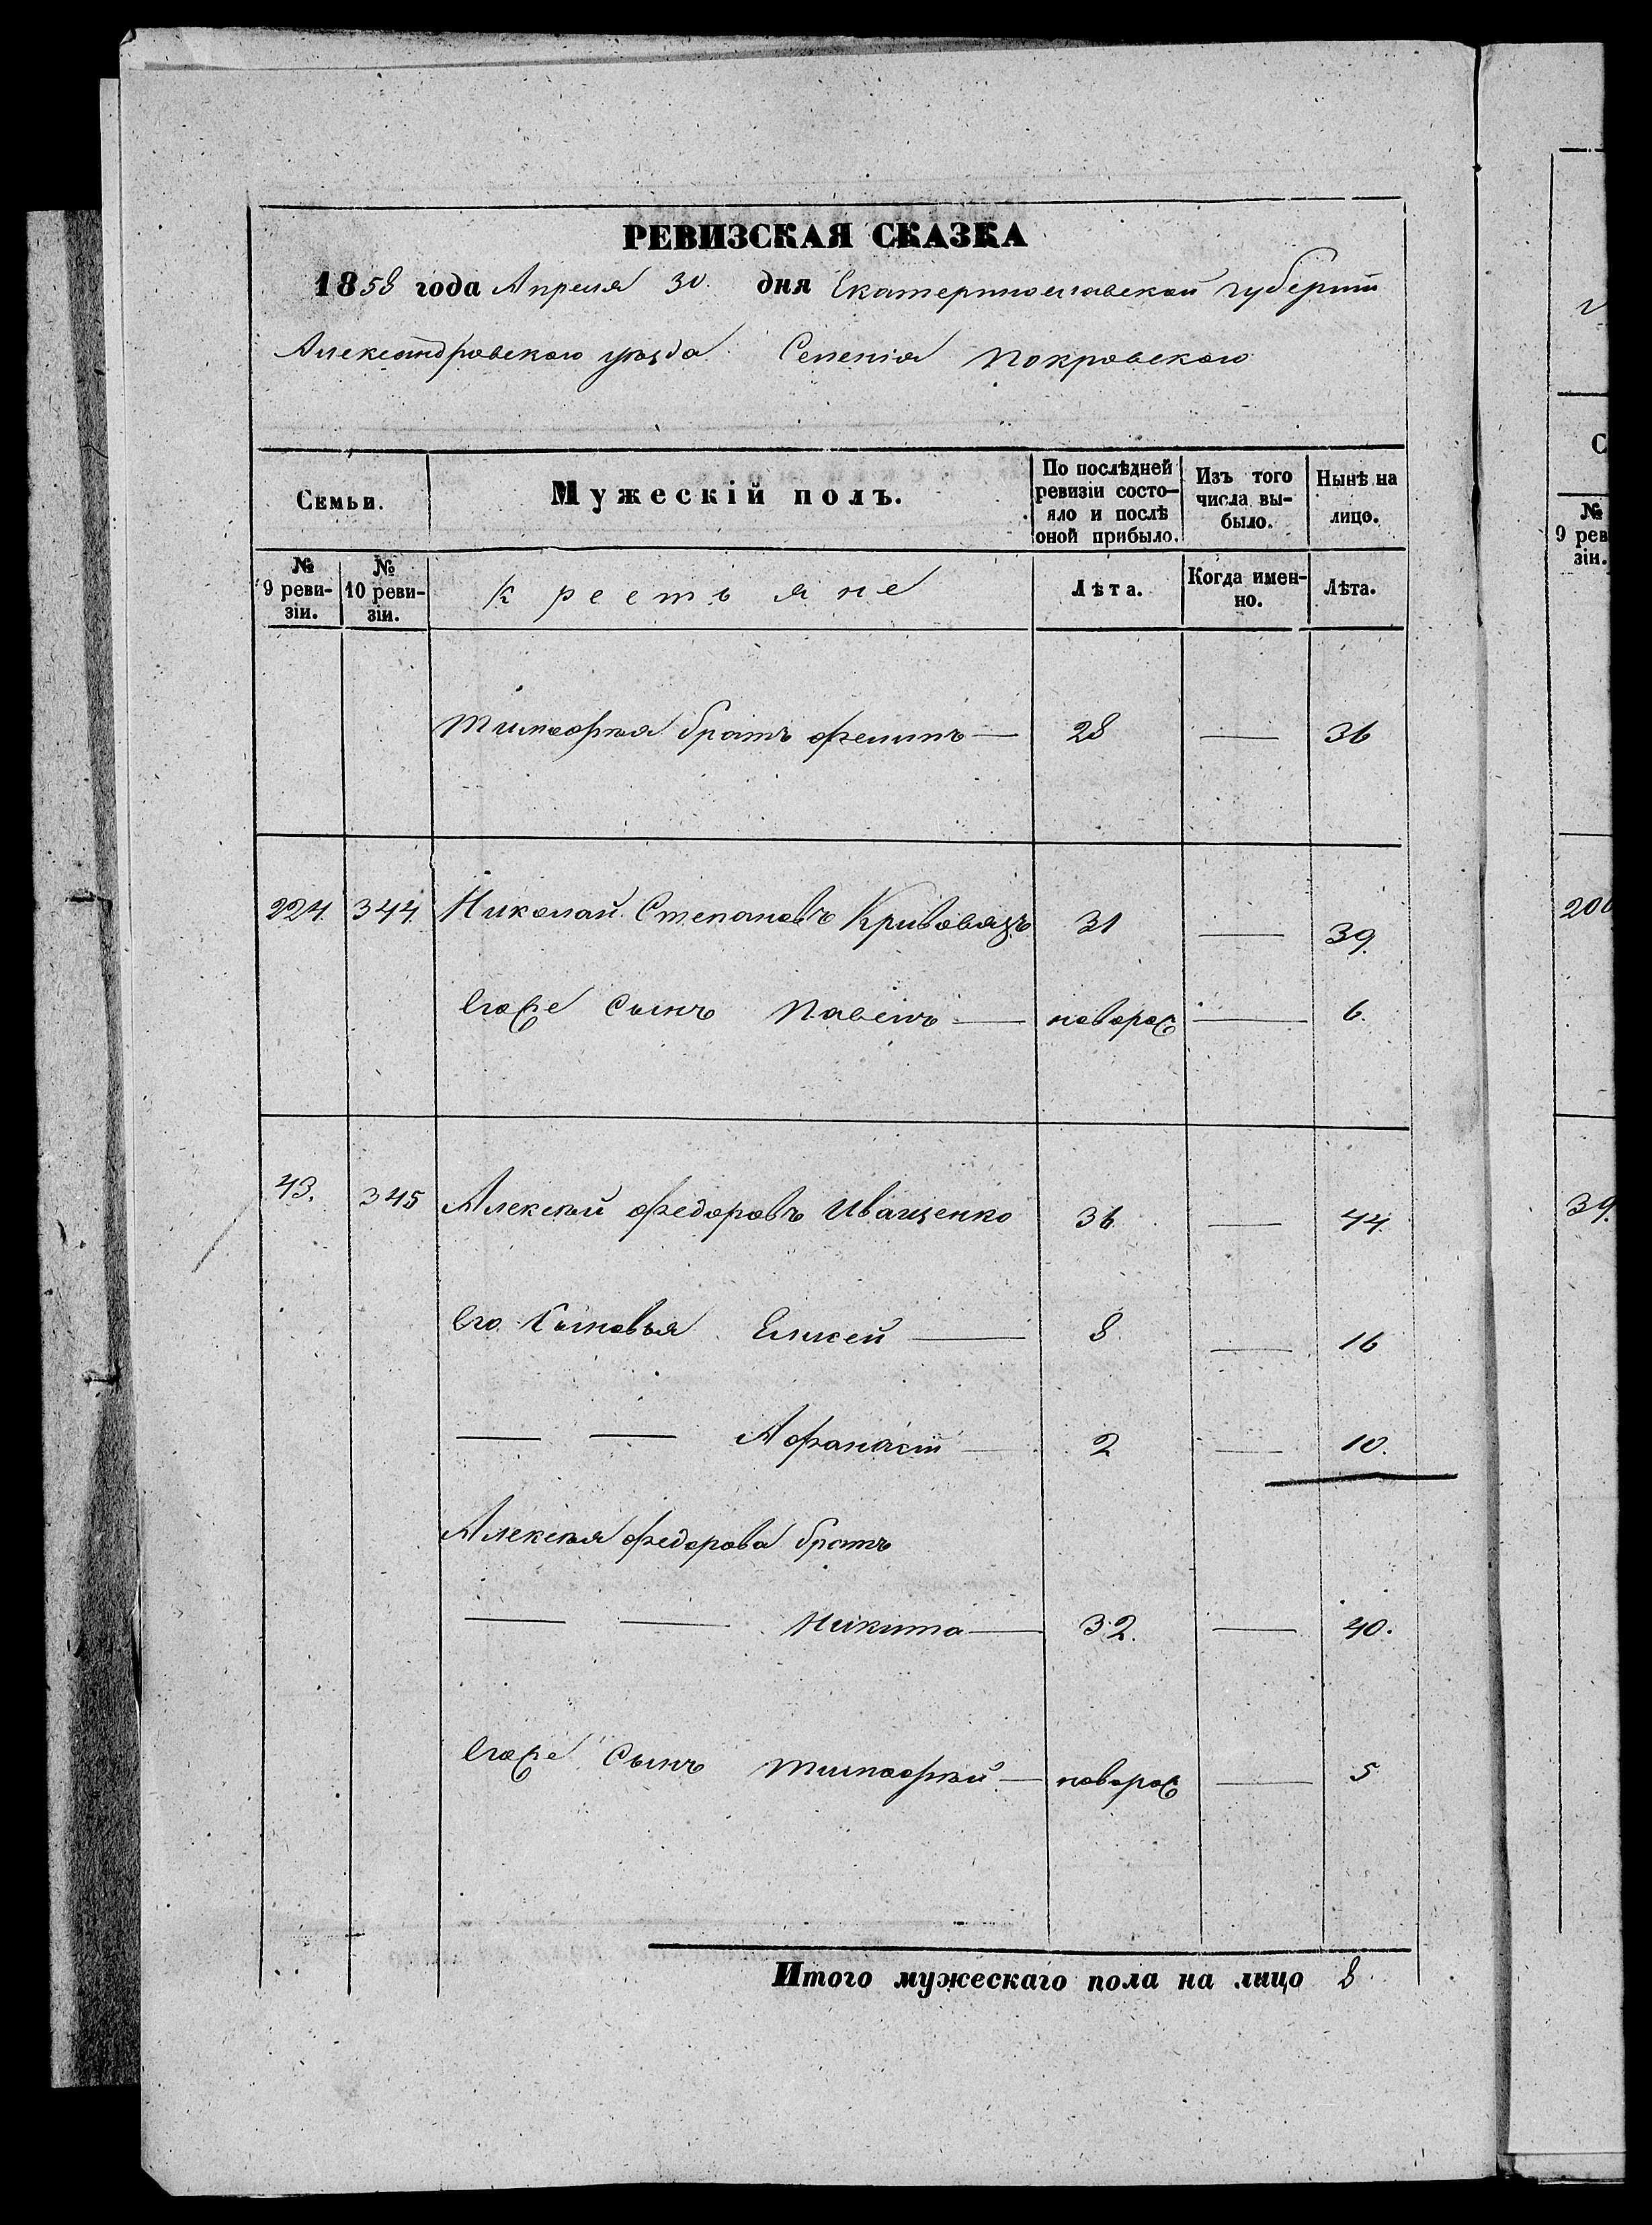 РЕВИЗСКАЯ СКАЗКА
1858 года Апреля 30. дня Екатеринославской губерніи
Александровского уѣзда. Селенія Покровского
Семьи.
Мужескій полъ.
По послѣдней ревизіи состо-
яло и послѣ
оной прибыло.
Изъ того
числа вы-
было.
Нынѣ на
лицо.
№
9 реви-
зіи.
№
10 реви-
зіи.
Крестьяне
Лѣта.
Когда имен-
но.
Лѣта.
Тимофѣя братъ Филипъ — 28 — 36
224. 344. Николай Степановъ Кривовязъ 31 — 39.
Егоже Сынъ Павелъ — новорож — 6.
43. 345 Алексѣй Федоровъ Иващенко 36 — 44.
Его Сыновья Елисей — 8 — 16
— — Афанасій — 2 — 10.
Алексѣя Федорова братъ
— — Никита — 32. — 40.
Егоже Сынъ Тимофѣй — новорож — 5
Итого мужескаго пола на лицо 8
С
№
9 рев
зіи.
200
39.